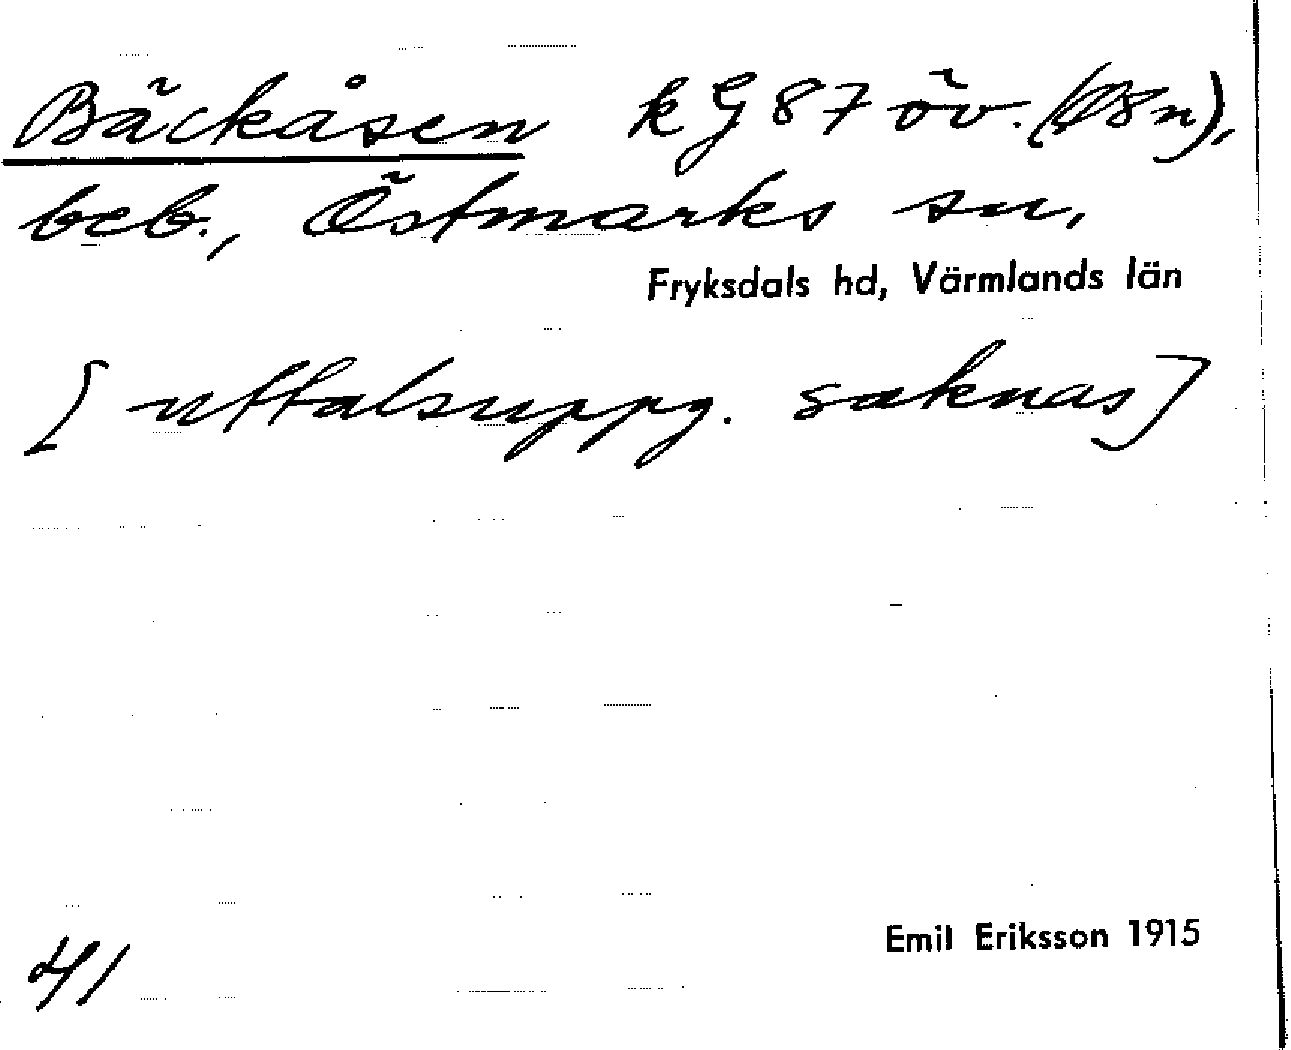 Bäckåsen kG 87 öv. (48n),
beb., Östmarks sn,
Fryksdals hd, Värmlands län
[uttalsuppg. saknas]
Emil Eriksson 1915
41